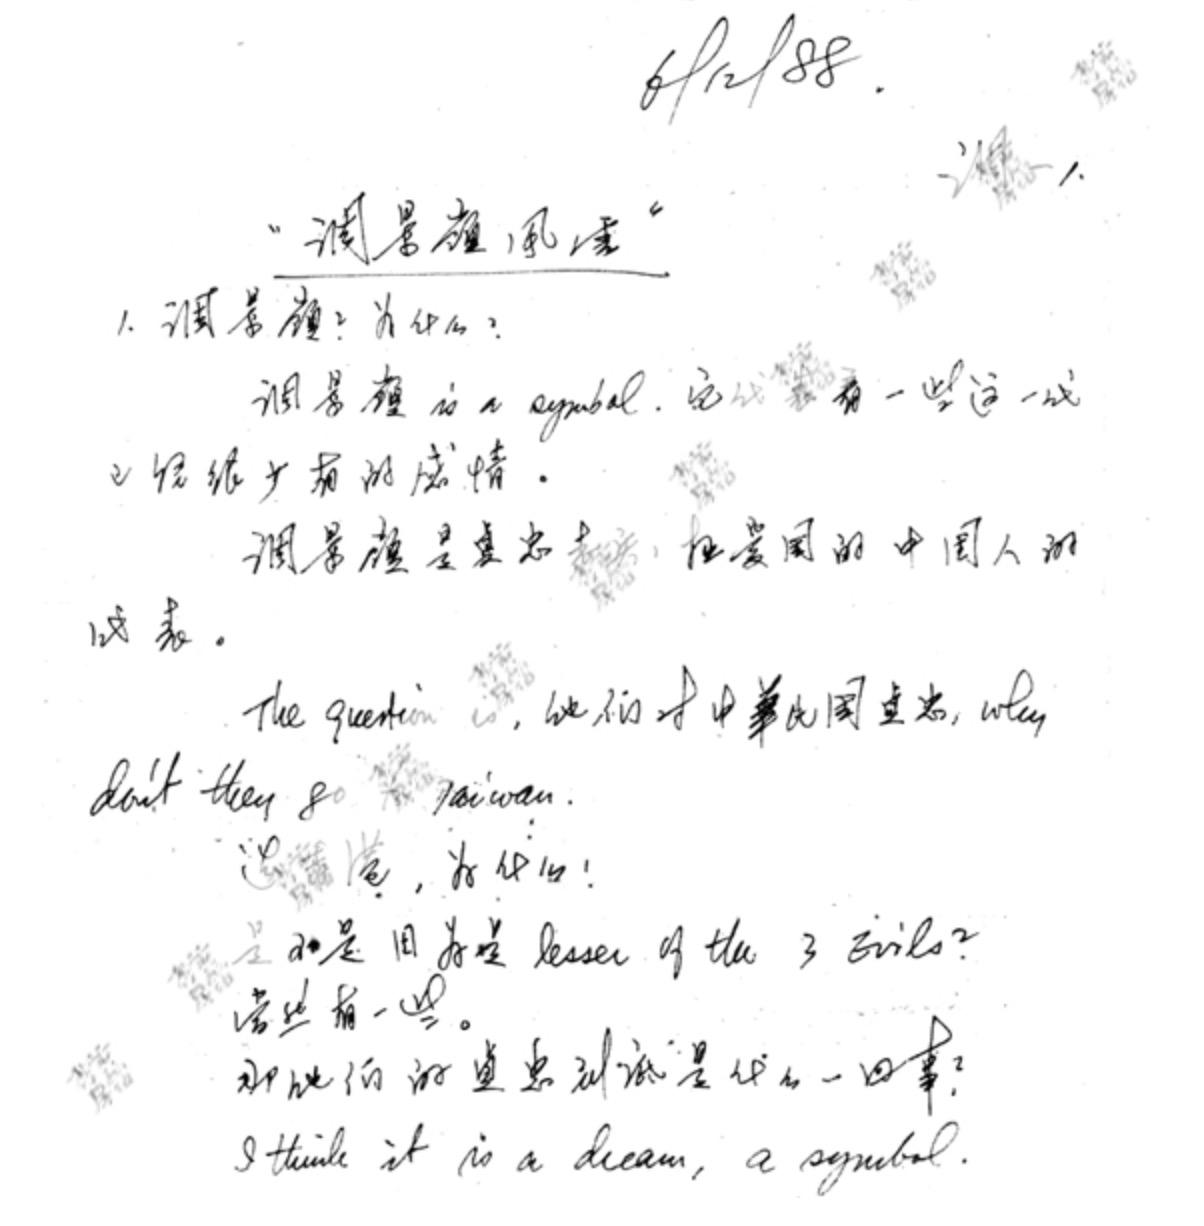 6/12/88.
调-1.
"调景嶺風雲"
1. 调景嶺? 为什么?
调景嶺 is a symbol. 它代表着一些这一代
已经很少有的感情。
调景嶺是愚忠 爱国的中国人的
代表。
The question is, 他们对中華民国愚忠, why
don't they go Taiwan.
港, 为什么!
是不是因为是 lesser of the 3 Evils?
当然有一些。
那他们的愚忠到底是什么一回事?
I think it is a dream, a symbol.